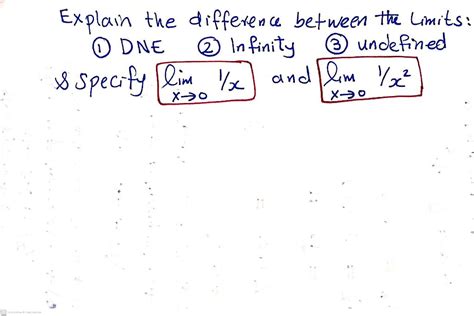 Explain the difference between the Limits:
① DNE ② Infinity ③ undefined
& specify lim x→0 1/x and lim x→0 1/x²